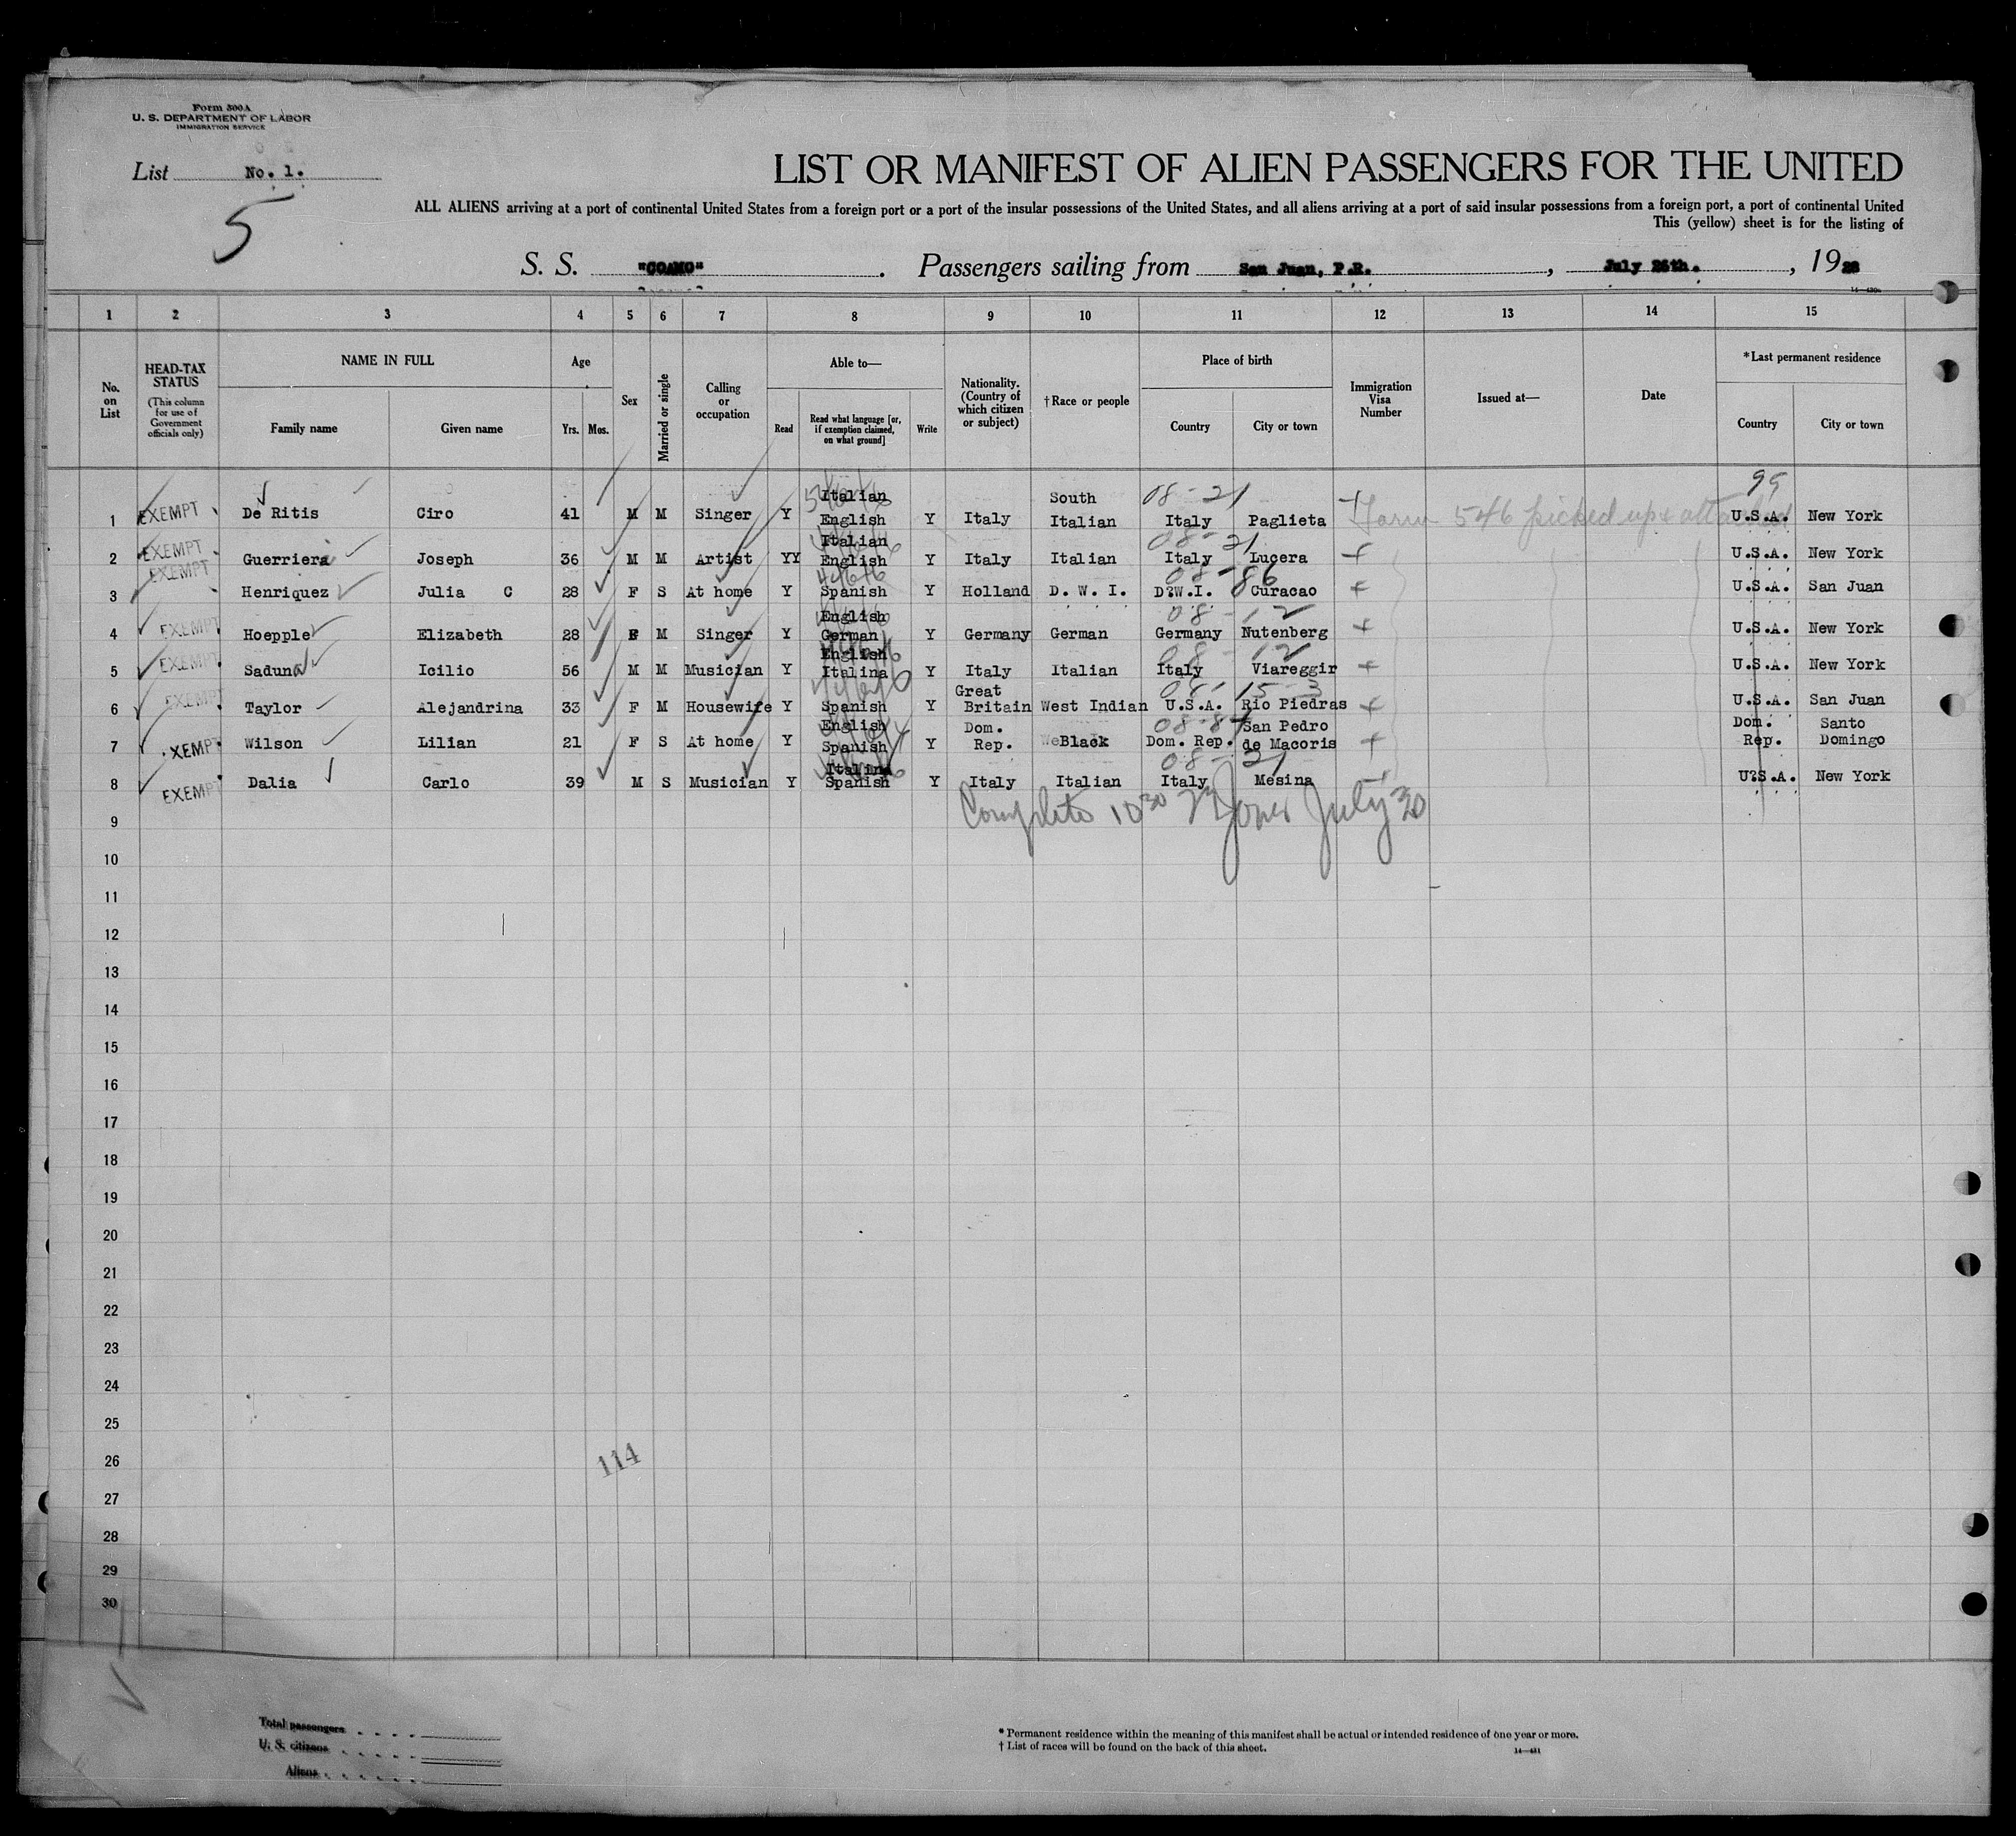 Form 500A
U. S. DEPARTMENT OF LABOR
IMMIGRATION SERVICE
List No. 1.
5
LIST OR MANIFEST OF ALIEN PASSENGERS FOR THE UNITED
ALL ALIENS arriving at a port of continental United States from a foreign port or a port of the insular possessions of the United States, and all aliens arriving at a port of said insular possessions from a foreign port, a port of continental United
This (yellow) sheet is for the listing of
S. S. "COAMO". Passengers sailing from San Juan, P.R., July 26th., 1928
1 2 3 4 5 6 7 8 9 10 11 12 13 14 15
No. on List
HEAD-TAX STATUS
(This column for use of Government officials only)
NAME IN FULL
Family name Given name
Age
Yrs. Mos.
Sex
Married or single
Calling or occupation
Able to—
Read
Read what language [or, if exemption claimed, on what ground]
Write
Nationality. (Country of which citizen or subject)
†Race or people
Place of birth
Country City or town
Immigration Visa Number
Issued at—
Date
*Last permanent residence
Country City or town
1 EXEMPT De Ritis Ciro 41 M M Singer Y Italian English Y Italy South Italian 08-21 Italy Paglieta Form 546 picked up & attached 99 U.S.A. New York
2 EXEMPT Guerriera Joseph 36 M M Artist YY Italian English Y Italy Italian 08-21 Italy Lucera U.S.A. New York
3 EXEMPT Henriquez Julia C 28 F S At home Y Spanish Y Holland D. W. I. 08-86 D?W.I. Curacao U.S.A. San Juan
4 EXEMPT Hoepple Elizabeth 28 F M Singer Y English German Y Germany German 08-12 Germany Nutenberg U.S.A. New York
5 EXEMPT Saduna Icilio 56 M M Musician Y English Italina Y Italy Italian 08-12 Italy Viareggir U.S.A. New York
6 EXEMPT Taylor Alejandrina 33 F M Housewife Y Spanish Y Great Britain West Indian 08-15-3 U.S.A. Rio Piedras U.S.A. San Juan
7 EXEMPT Wilson Lilian 21 F S At home Y English Spanish Y Dom. Rep. Black 08-87 Dom. Rep. San Pedro de Macoris Dom. Rep. Santo Domingo
8 EXEMPT Dalia Carlo 39 M S Musician Y Italina Spanish Y Italy Italian 08-21 Italy Mesina U?S.A. New York
Complete 10 30 Jones July 30
9
10
11
12
13
14
15
16
17
18
19
20
21
22
23
24
25
26
114
27
28
29
30
Total passengers
U. S. citizens
Aliens
* Permanent residence within the meaning of this manifest shall be actual or intended residence of one year or more.
† List of races will be found on the back of this sheet.
14—431